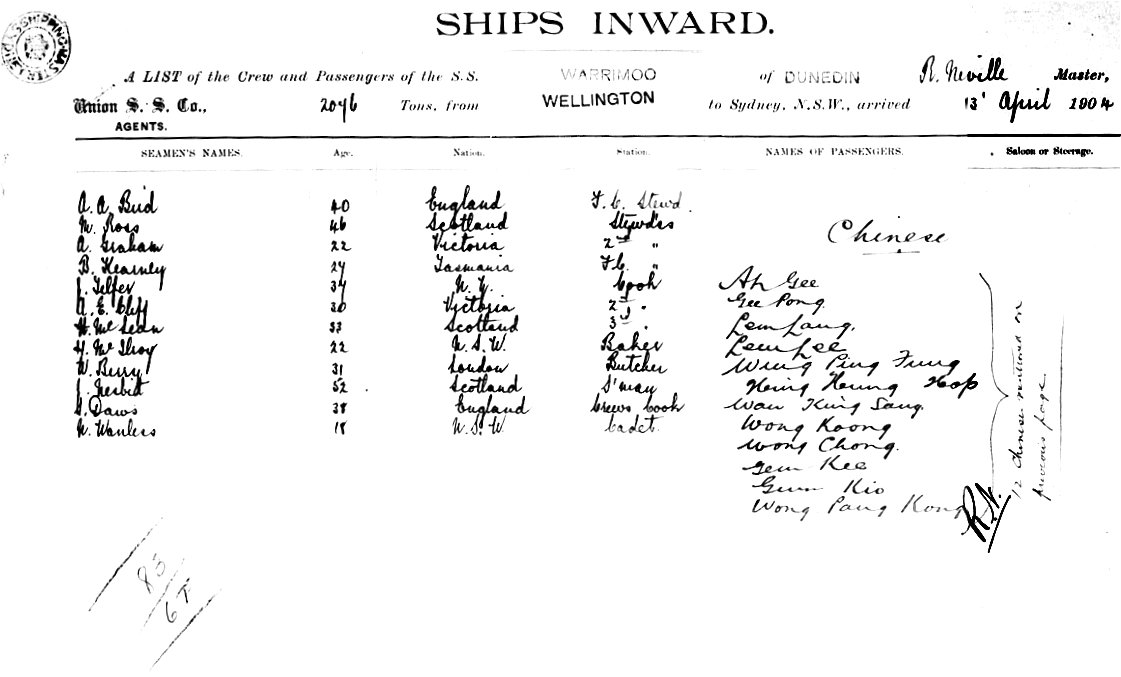 SHIPS INWARD.
A LIST of the Crew and Passengers of the S.S. WARRIMOO of DUNEDIN R. Neville Master,
Union S. S. Co., 2076 Tons, from WELLINGTON to Sydney, N.S.W., arrived 13' April 1904
AGENTS.
SEAMEN'S NAMES. Age. Nation. Station. NAMES OF PASSENGERS. Saloon or Steerage.
A. A. Bird 40 England F. C. Stewd.
M. Ross 46 Scotland Stewd'ss
A. Graham 22 Victoria 2nd "
Chinese
B. Kearney 27 Tasmania F.C. "
J. Telfer 34 N. Z. Cook Ah Gee
A. E. Cliff 30 Victoria 2nd " Gee Pong.
H. McLean 33 Scotland 3rd " Lem Lang.
H. McIlroy 22 N. S. W. Baker Lem Lee
W. Berry 31 London Butcher Wing Ping Fung
J. Nesbit 52 Scotland S'man Heing Heung Hop
G. Daws 38 England Crews Cook Wan King Sang.
N. Wanless 18 N. S. W Cadet. Wong Koong
Wong Chong.
Gem Kee
Gum Kio
Wong Pang Kong
12 Chinese mentioned on
previous page.
R.N.
83
67